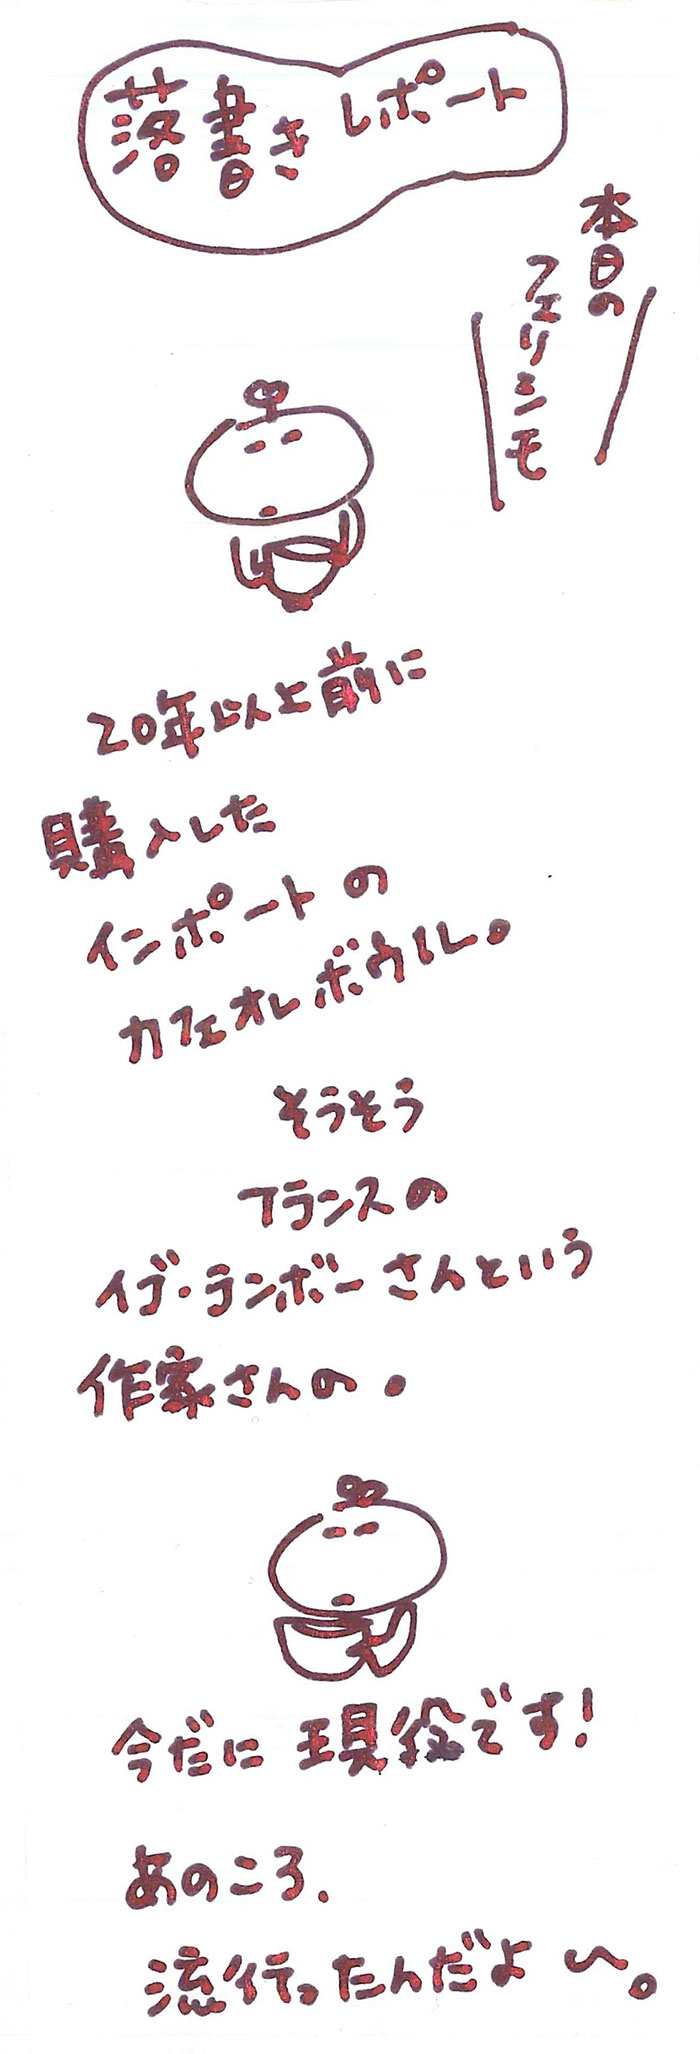 落書きレポート
本日の
フェリシモ
20年以上前に
購入した
インポートの
カフェオレボウル。
そうそう
フランスの
イヴ・ランボーさんという
作家さんの。
今だに現役です!
あのころ、
流行ったんだよ〜。